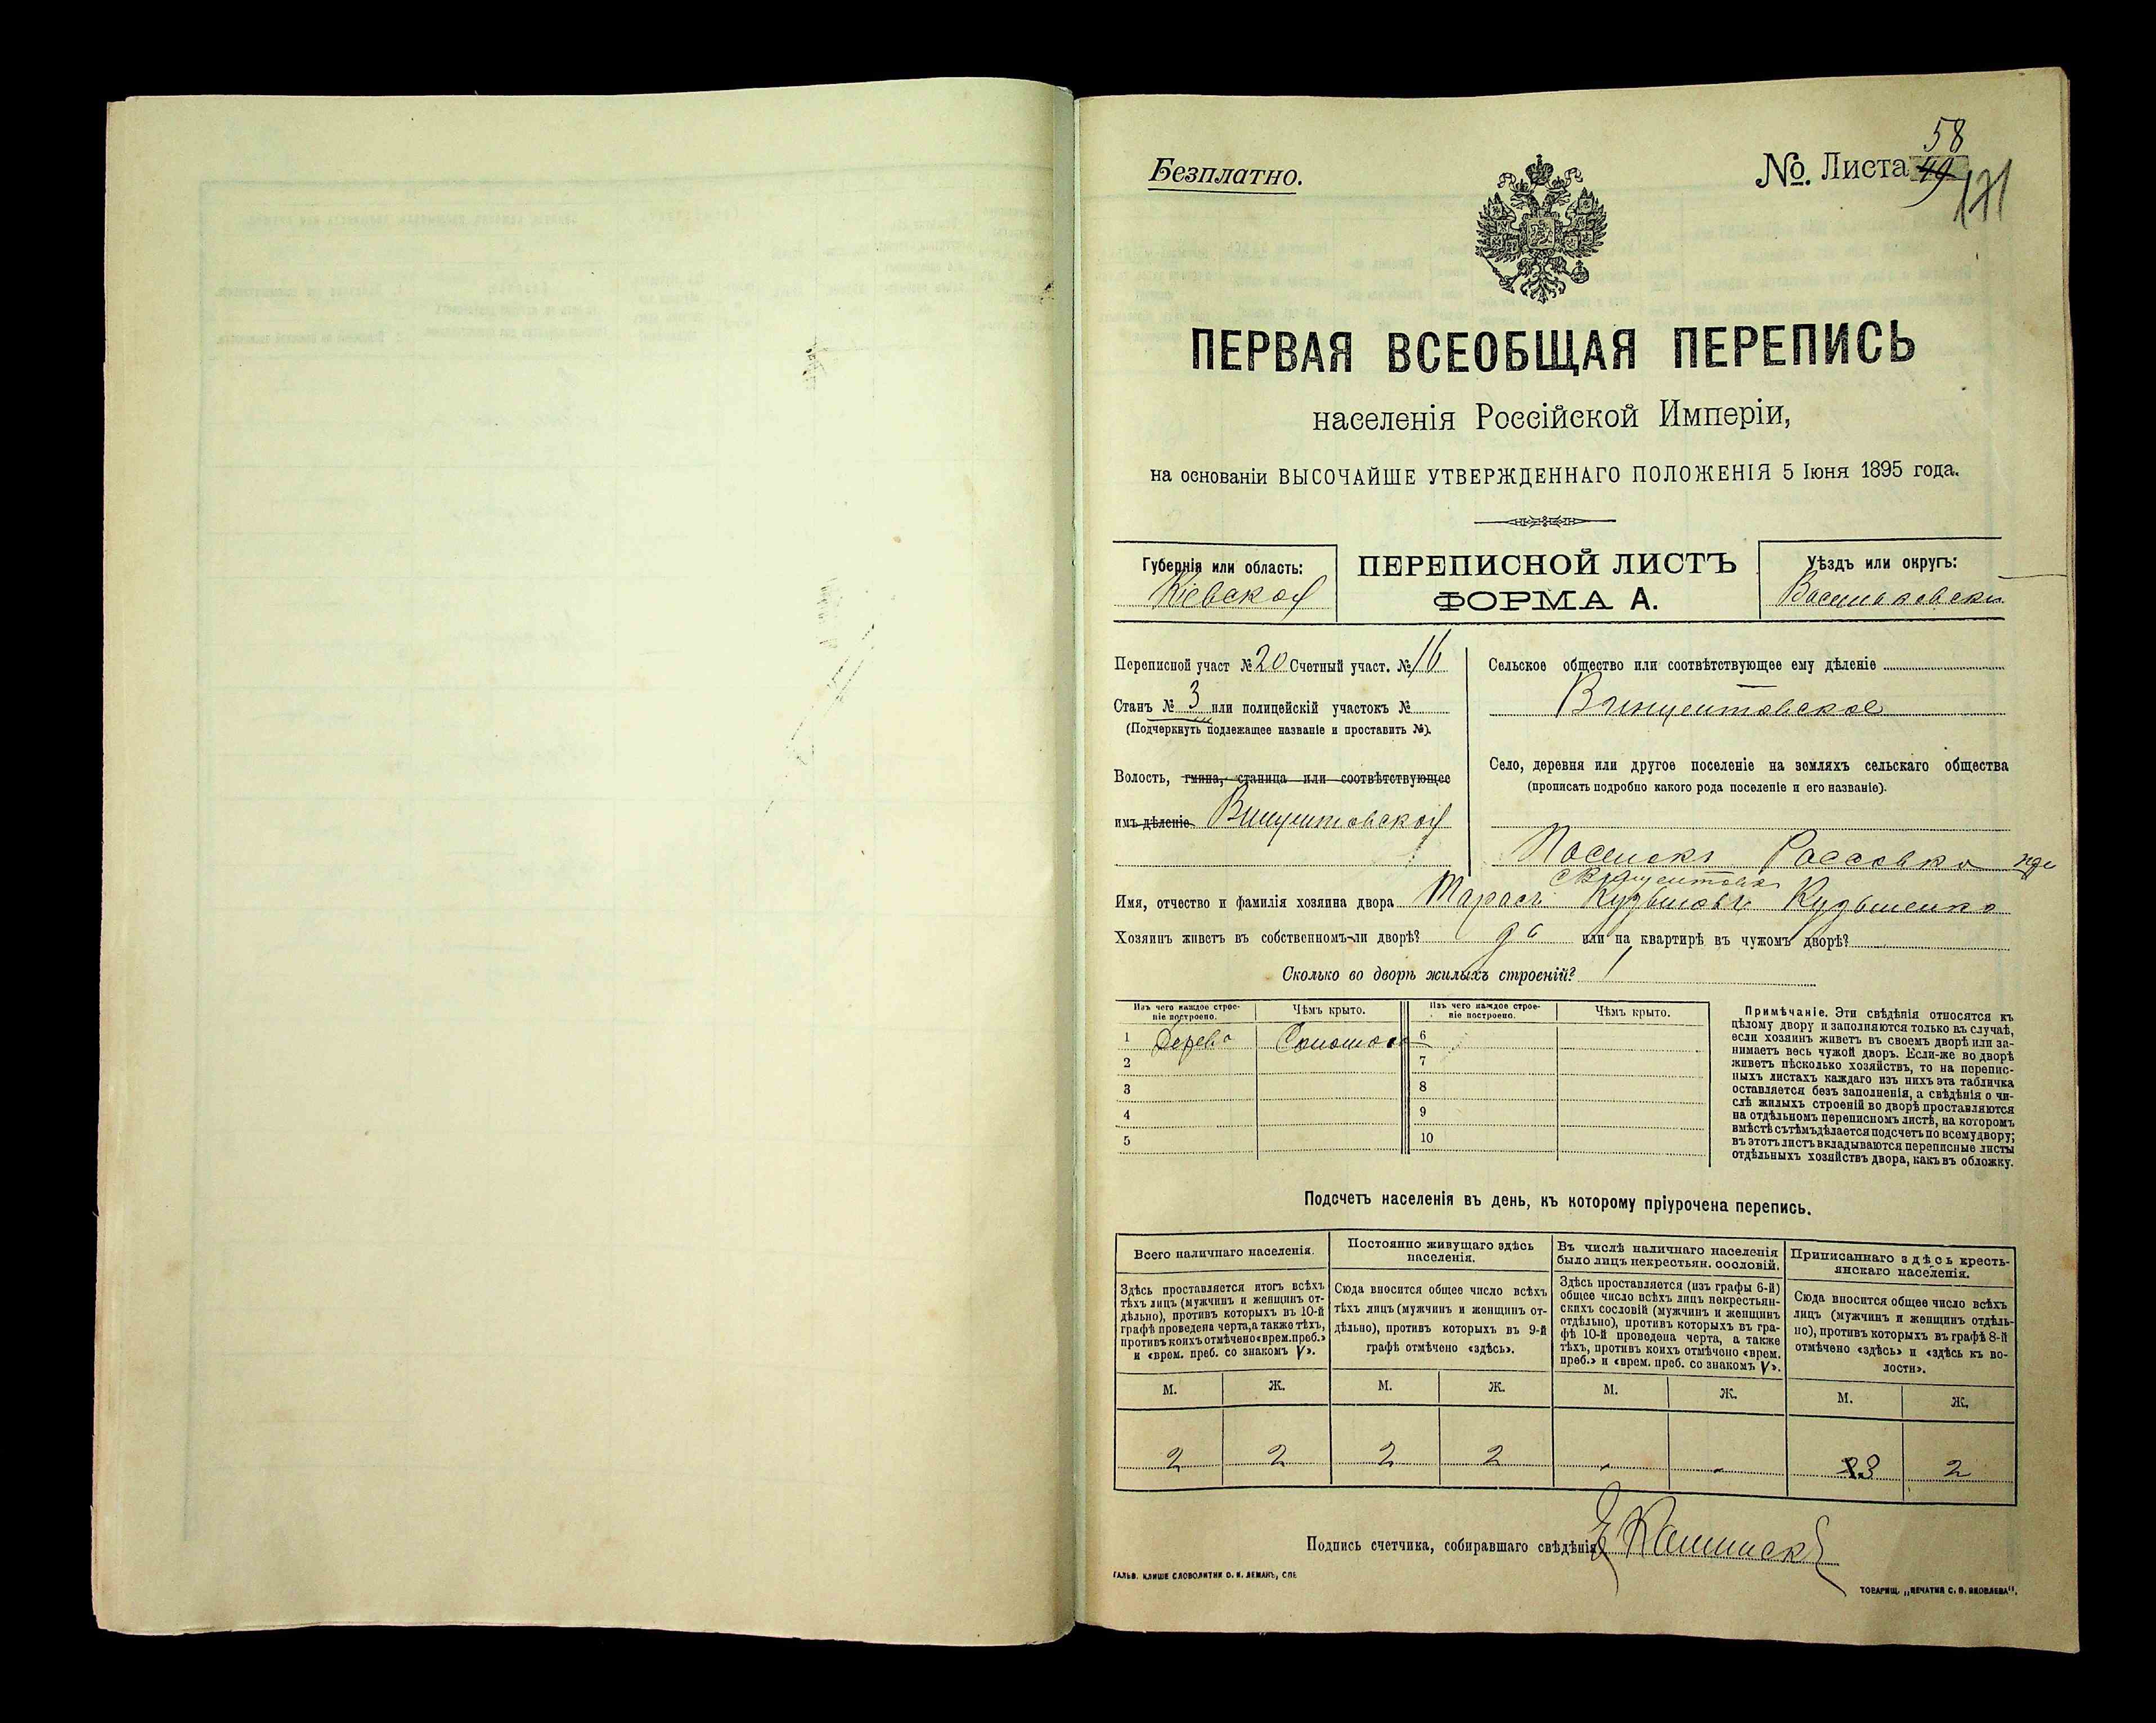 Безплатно.
№. Листа 49
58
131
ПЕРВАЯ ВСЕОБЩАЯ ПЕРЕПИСЬ
населенія Россійской Имперіи,
на основаніи ВЫСОЧАЙШЕ УТВЕРЖДЕННАГО ПОЛОЖЕНІЯ 5 Іюня 1895 года.
Губернія или область:
Кіевская
ПЕРЕПИСНОЙ ЛИСТЪ
ФОРМА А.
Уѣздъ или округъ:
Васильковскій
Переписной участ №20 Счетный участ. №16
Станъ № 3 или полицейскій участокъ №
(Подчеркнуть подлежащее названіе и проставить №).
Волость, гмина, станица или соотвѣтствующее
имъ дѣленіе Винцентовская
Сельское общество или соотвѣтствующее ему дѣленіе
Винцентовское
Село, деревня или другое поселеніе на земляхъ сельскаго общества
(прописать подробно какого рода поселеніе и его названіе).
Поселокъ Россовка при
с Винцентовка
Имя, отчество и фамилія хозяина двора Тарасъ Кузьмовъ Кузьменко
Хозяинъ живетъ въ собственномъ-ли дворѣ? да или на квартирѣ въ чужомъ дворѣ?
Сколько во дворѣ жилыхъ строеній? 1
Изъ чего каждое строе-
ніе построено.
Чѣмъ крыто.
Изъ чего каждое строе-
ніе построено.
Чѣмъ крыто.
1 Дерева Соломою 6
2 7
3 8
4 9
5 10
Примѣчаніе. Эти свѣдѣнія относятся къ
цѣлому двору и заполняются только въ случаѣ,
если хозяинъ живетъ въ своемъ дворѣ или за-
нимаетъ весь чужой дворъ. Если-же во дворѣ
живетъ нѣсколько хозяйствъ, то на перепис-
ныхъ листахъ каждаго изъ нихъ эта табличка
оставляется безъ заполненія, а свѣдѣнія о чи-
слѣ жилыхъ строеній во дворѣ проставляются
на отдѣльномъ переписномъ листѣ, на которомъ
вмѣстѣ съ тѣмъ дѣлается подсчетъ по всему двору;
въ этотъ листъ вкладываются переписные листы
отдѣльныхъ хозяйствъ двора, какъ въ обложку.
Подсчетъ населенія въ день, къ которому пріурочена перепись.
Всего наличнаго населенія.
Здѣсь проставляется итогъ всѣхъ
тѣхъ лицъ (мужчинъ и женщинъ от-
дѣльно), противъ которыхъ въ 10-й
графѣ проведена черта, а также тѣхъ,
противъ коихъ отмѣчено «врем. преб.»
и «врем. преб. со знакомъ V».
Постоянно живущаго здѣсь
населенія.
Сюда вносится общее число всѣхъ
тѣхъ лицъ (мужчинъ и женщинъ от-
дѣльно), противъ которыхъ въ 9-й
графѣ отмѣчено «здѣсь».
Въ числѣ наличнаго населенія
было лицъ некрестьян. сословій.
Здѣсь проставляется (изъ графы 6-й)
общее число всѣхъ лицъ некрестьян-
скихъ сословій (мужчинъ и женщинъ
отдѣльно), противъ которыхъ въ гра-
фѣ 10-й проведена черта, а также
тѣхъ, противъ коихъ отмѣчено «врем.
преб.» и «врем. преб. со знакомъ V».
Приписаннаго здѣсь кресть-
янскаго населенія.
Сюда вносится общее число всѣхъ
лицъ (мужчинъ и женщинъ отдѣль-
но), противъ которыхъ въ графѣ 8-й
отмѣчено «здѣсь» и «здѣсь къ во-
лости».
М. Ж. М. Ж. М. Ж. М. Ж.
2 2 2 2 - - 3 2
Подпись счетчика, собиравшаго свѣдѣнія
ГАЛЬВ. КЛИШЕ СЛОВОЛИТНИ О. И. ЛЕМАНЪ, СПБ
ТОВАРИЩ. „ПЕЧАТНЯ С. П. ЯКОВЛЕВА".